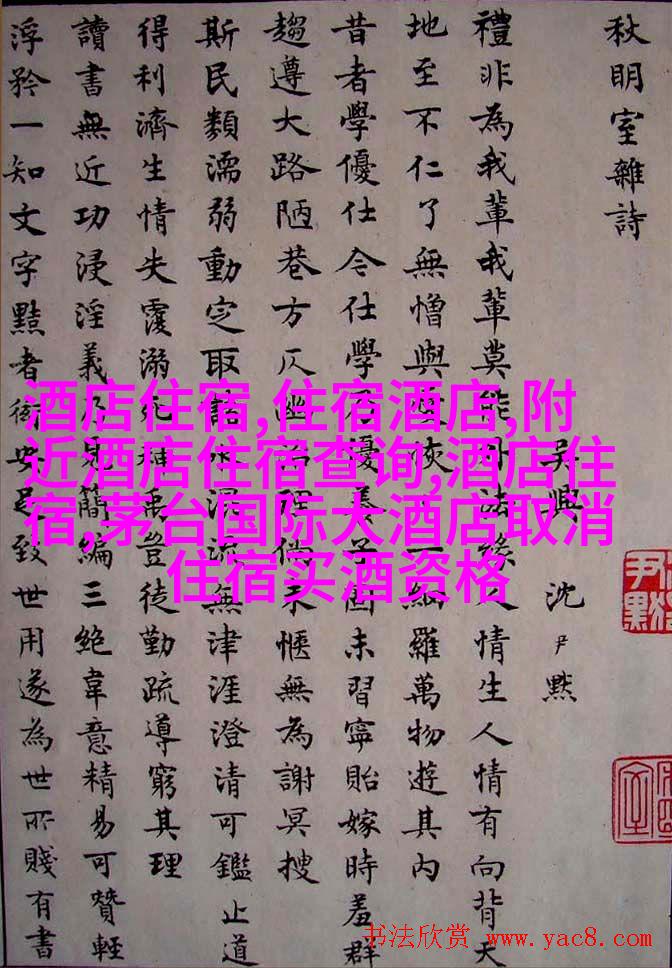 秋明室雜詩
吳興 沈尹默
禮非為我輩我輩莫能外法緣人情生人情有向背天
地至不仁了無憎與恢一網羅萬物遊其內
昔者學優仕今仕學不優養子固未習寧貽嫁時羞群
趨遵大路陋巷方仄幽理未愜無為謝冥搜
斯民類濡弱動定取諸水混流無津涯澄清可鑑止道
得利濟生情失覆溺死禹豈徒勤疏導窮其理
讀書無近功浸淫義乃見簡編三絕韋意精易可贊輕
浮矜一知文字黠者衒安足致世用遂為世所賤有書
酒店住宿,住宿酒店,附
近酒店住宿查询,酒店住
宿,茅台国际大酒店取消
住宿买酒资格
尹默
书法欣赏 www.yac8.com